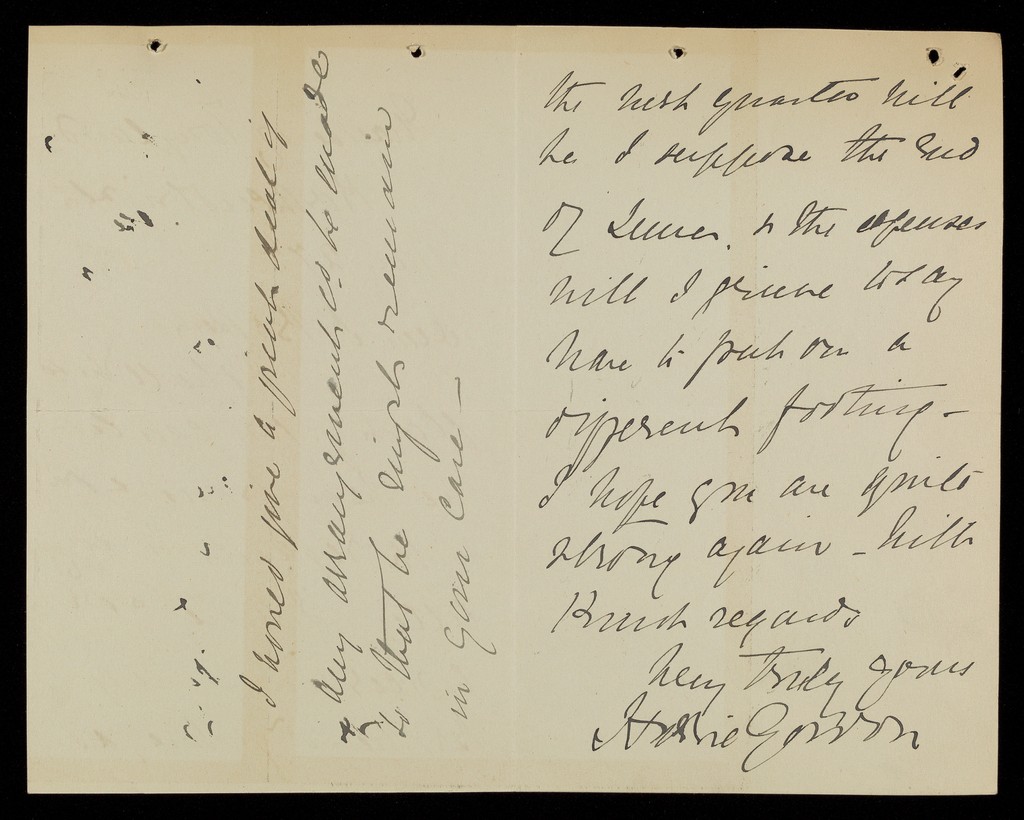 the next quarter will
be I suppose the end
of June. & the expenses
will I grieve to say
have to put on a
different footing -
I hope you are quite
strong again - With
Kindest regards
Very truly yours
Gordon
I would give a great deal if
any arrangements cd. be made
so that he might remain
in your care -